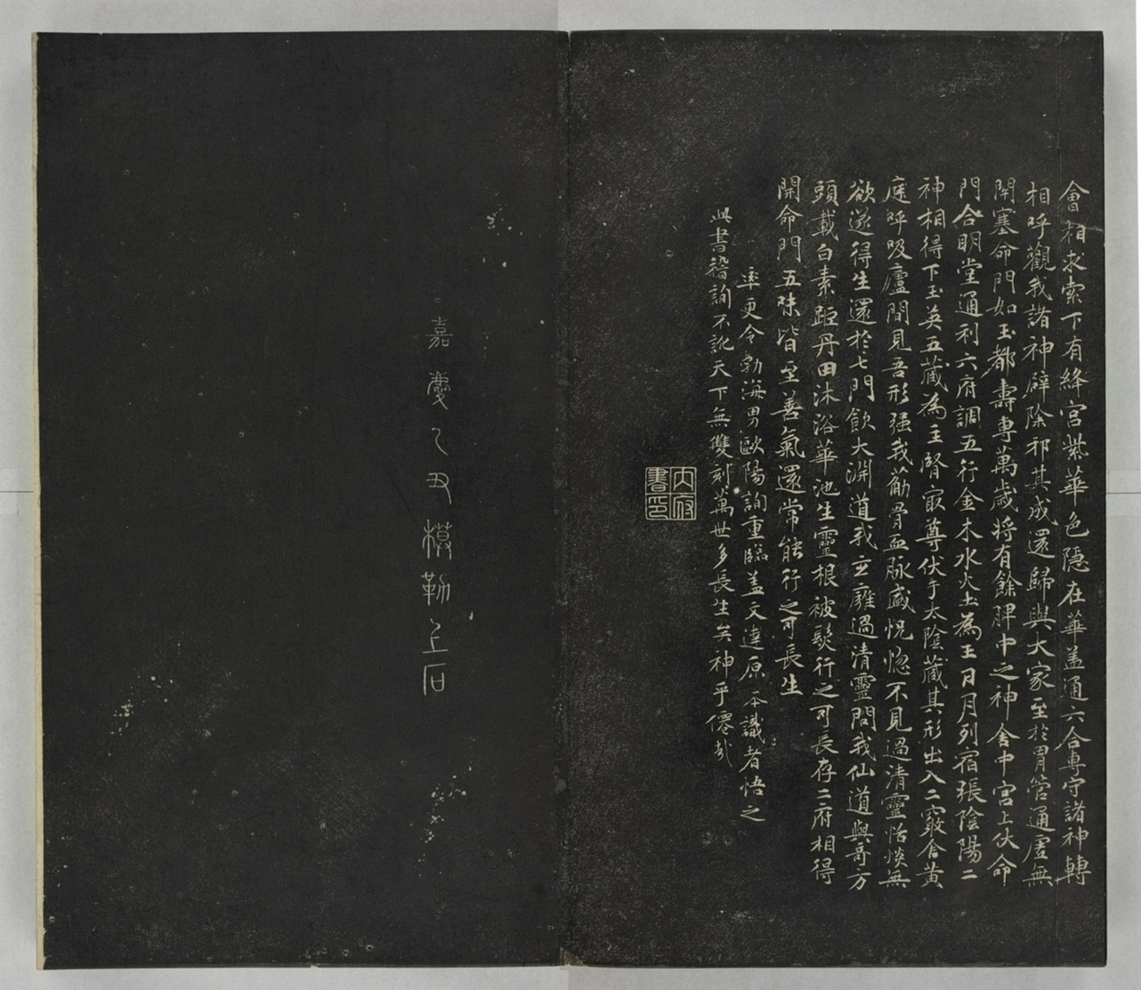 會相求索下有絳宮紫華色隱在華蓋通六合專守諸神轉
相呼觀我諸神辟除邪其成還歸與大家至於胃管通虛無
閉塞命門如玉都壽專萬歲將有餘脾中之神舍中宮上伏命
門合明堂通利六府調五行金木水火土為王日月列宿張陰陽二
神相得下玉英五藏為主腎寂尊伏于太陰藏其形出入二竅舍黃
庭呼吸廬間見吾形强我葥骨血脉盛怳惚不見過清靈恬惔無
欲遂得生還於七門飲大淵道我玄廱過清靈問我仙道與奇方
頭載白素距丹田沐浴華池生靈根被髮行之可長存二府相得
開命門五味皆至善氣還常能行之可長生
率更令勃海男歐陽詢重臨蓋文達原本識者悟之
此書褚詢不訛天下無雙刻萬世多長生矣神乎僊哉
內府書印
嘉慶乙丑模勒上石